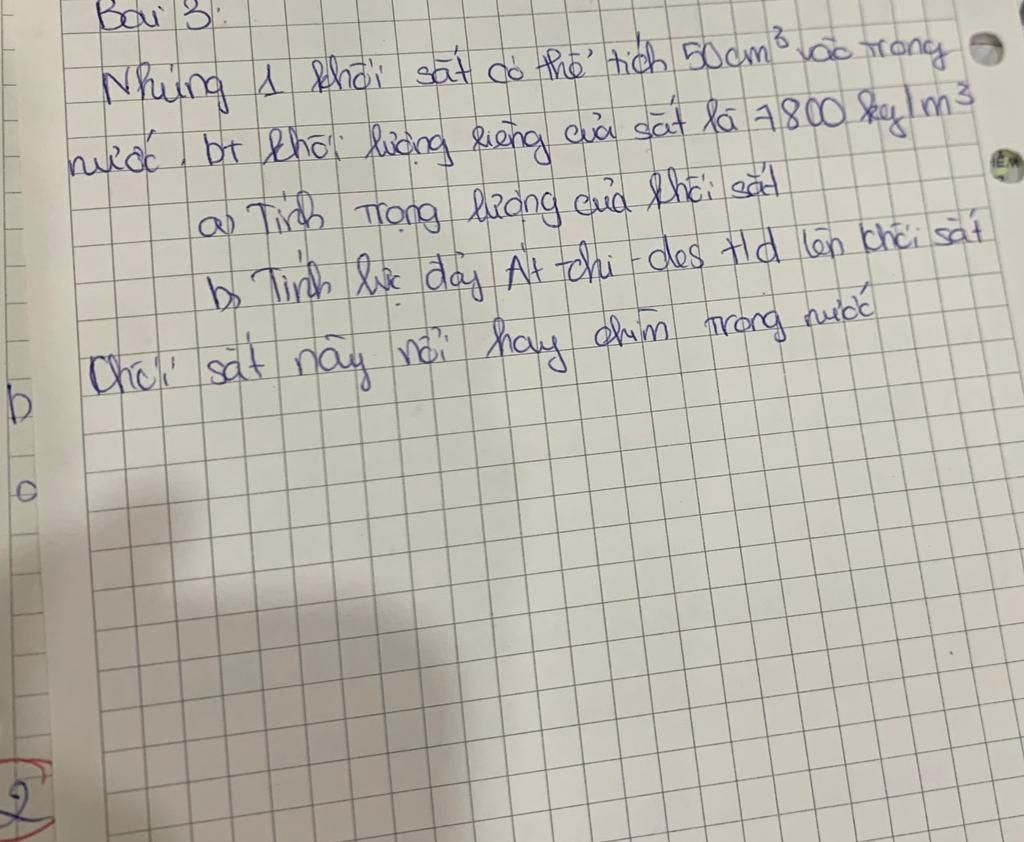 Bài 3:
Nhúng 1 khối sắt có thể tích 50cm³ vào trong
nước, bt khối lượng riêng của sắt là 7800 kg/m³
a) Tính trọng lượng của khối sắt
b) Tính lực đẩy At-chi-des t/d lên khối sắt
Khối sắt này nổi hay chìm trong nước
b
o
2